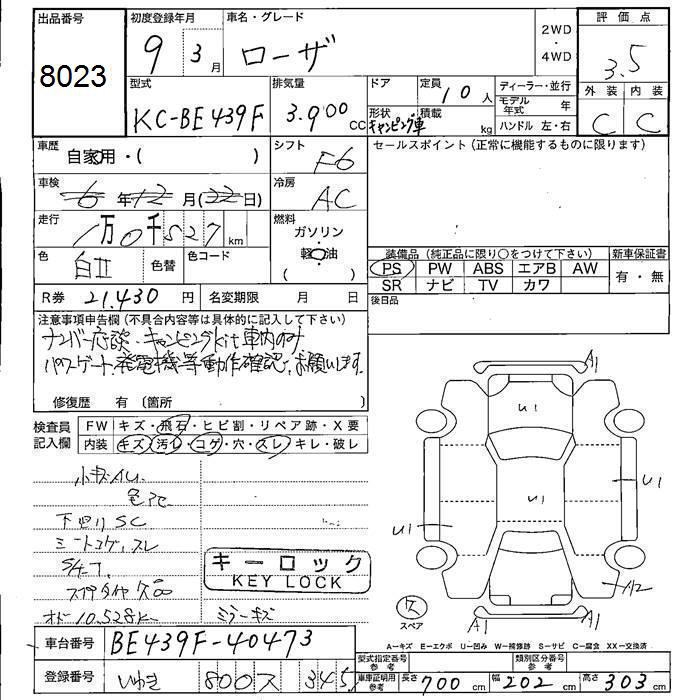 出品番号
8023
初度登録年月
9 3 月
車名・グレード
ローザ
2WD
・
4WD
評価点
3.5
外装 内装
C C
型式
KC-BE439F
排気量
3.900 CC
ドア
形状
キャンピング車
定員
10 人
積載
kg
ディーラー・並行
モデル年式 年
ハンドル 左・右
車歴
自家用・( )
シフト
F6
車検
6 年 12 月(22日)
冷房
AC
走行
1万0千527 km
燃料
ガソリン
軽油
( )
色
白II
色替
色コード
R券 21.430 円
名変期限 月 日
セールスポイント(正常に機能するものに限ります)
装備品(純正品に限り○をつけて下さい)
PS PW ABS エアB AW
SR ナビ TV カワ
新車保証書
有・無
後日品
注意事項申告欄(不具合内容等は具体的に記入して下さい)
ナンバー応談・キャンピングkit車内のみ
パワーゲート、発電機等動作確認、お願いします。
修復歴 有(箇所 )
検査員記入欄
FW キズ・飛石・ヒビ割・リペア跡・X要
内装 キズ・汚れ・コゲ・穴・スレ・キレ・破レ
下回りSC
シートコゲ、スレ
スペアタイヤ欠品
オド 10.528k
ミラーキズ
キーロック
KEY LOCK
A1
U1
U1
U1
U1
A2
A1
A1
欠
スペア
A=キズ E=エクボ U=凹み W=補修跡 S=サビ C=腐食 XX=交換済
車台番号
BE439F-40473
登録番号
いわき 800 ス 345
型式指定番号
参考
類別区分番号
参考
車庫証明用
参考
長さ 700 cm
幅 202 cm
高さ 303 cm